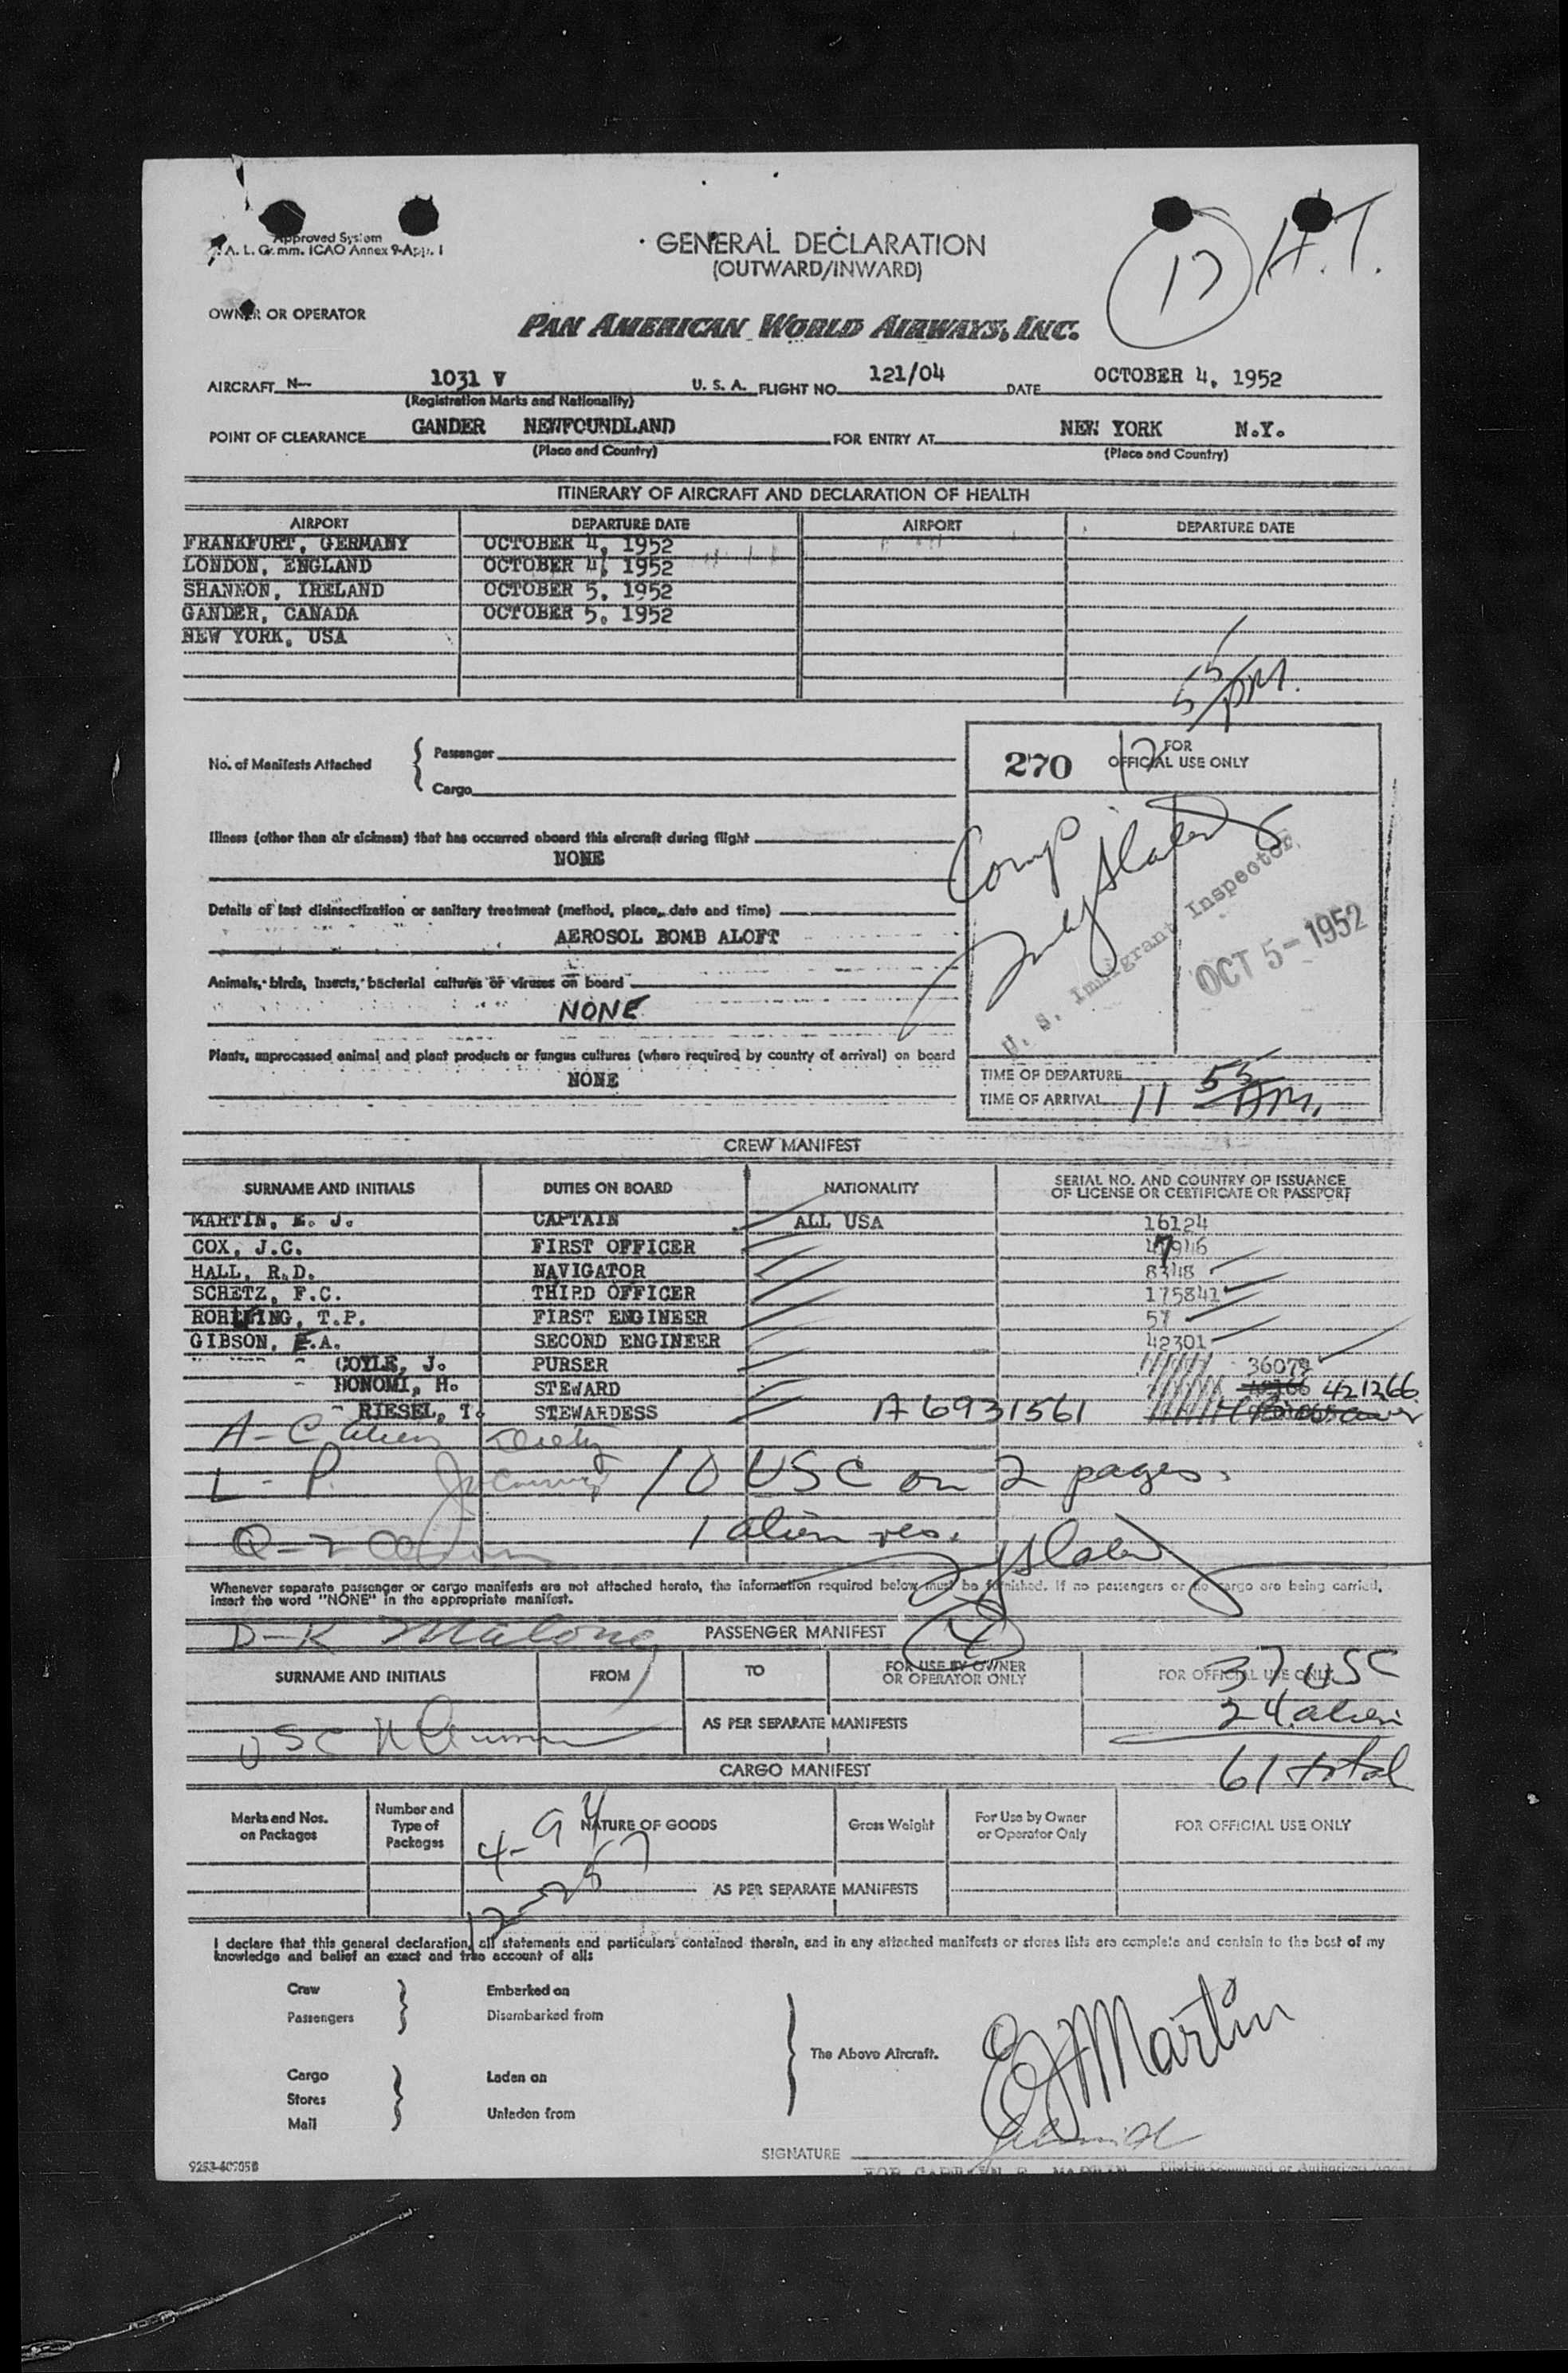 Approved System
A. L. Gr. mm. ICAO Annex 9-App. I
GENERAL DECLARATION
(OUTWARD/INWARD)
17 H.T.
OWNER OR OPERATOR
PAN AMERICAN WORLD AIRWAYS, INC.
AIRCRAFT N- 1031 V U. S. A. FLIGHT NO. 121/04 DATE OCTOBER 4, 1952
(Registration Marks and Nationality)
POINT OF CLEARANCE GANDER NEWFOUNDLAND FOR ENTRY AT NEW YORK N.Y.
(Place and Country) (Place and Country)
ITINERARY OF AIRCRAFT AND DECLARATION OF HEALTH
AIRPORT DEPARTURE DATE AIRPORT DEPARTURE DATE
FRANKFURT, GERMANY OCTOBER 4, 1952
LONDON, ENGLAND OCTOBER 4, 1952
SHANNON, IRELAND OCTOBER 5, 1952
GANDER, CANADA OCTOBER 5, 1952
NEW YORK, USA
55 PM.
No. of Manifests Attached { Passenger
Cargo
270 12 FOR
OFFICIAL USE ONLY
Illness (other than air sickness) that has occurred aboard this aircraft during flight
NONE
Comp
Details of last disinsectization or sanitary treatment (method, place, date and time)
AEROSOL BOMB ALOFT
U. S. Immigrant Inspector
OCT 5- 1952
Animals, birds, insects, bacterial cultures or viruses on board
NONE
Plants, unprocessed animal and plant products or fungus cultures (where required by country of arrival) on board
NONE
TIME OF DEPARTURE
TIME OF ARRIVAL 11 55 AM.
CREW MANIFEST
SURNAME AND INITIALS DUTIES ON BOARD NATIONALITY SERIAL NO. AND COUNTRY OF ISSUANCE
OF LICENSE OR CERTIFICATE OR PASSPORT
MARTIN, E. J. CAPTAIN ALL USA 16124
COX, J.C. FIRST OFFICER
HALL, R.D. NAVIGATOR 8348
SCHETZ, F.C. THIRD OFFICER 175841
T.P. FIRST ENGINEER 57
GIBSON, E.A. SECOND ENGINEER 42301
COYLE, J. PURSER 36079
BONOMI, H. STEWARD 421266
RIESEL, T. STEWARDESS A6931561
A - C
L - P. 10 USC on 2 pages.
Q - Z 1 alien res.
Whenever separate passenger or cargo manifests are not attached hereto, the information required below must be furnished. If no passengers or no cargo are being carried,
insert the word "NONE" in the appropriate manifest.
D-K Malone PASSENGER MANIFEST 4
SURNAME AND INITIALS FROM TO FOR USE BY OWNER
OR OPERATOR ONLY FOR OFFICIAL USE ONLY
37 USC
AS PER SEPARATE MANIFESTS 24 alien
USC
61 total
CARGO MANIFEST
Marks and Nos.
on Packages Number and
Type of
Packages NATURE OF GOODS Gross Weight For Use by Owner
or Operator Only FOR OFFICIAL USE ONLY
4-94
12-257
AS PER SEPARATE MANIFESTS
I declare that this general declaration, all statements and particulars contained therein, and in any attached manifests or stores lists are complete and contain to the best of my
knowledge and belief an exact and true account of all:
Crew Embarked on
Passengers Disembarked from
The Above Aircraft.
Cargo Laden on
Stores
Mail Unladen from
EJ Martin
SIGNATURE
FOR CAPTAIN E. MARTIN Pilot-in-Command or Authorized Agent